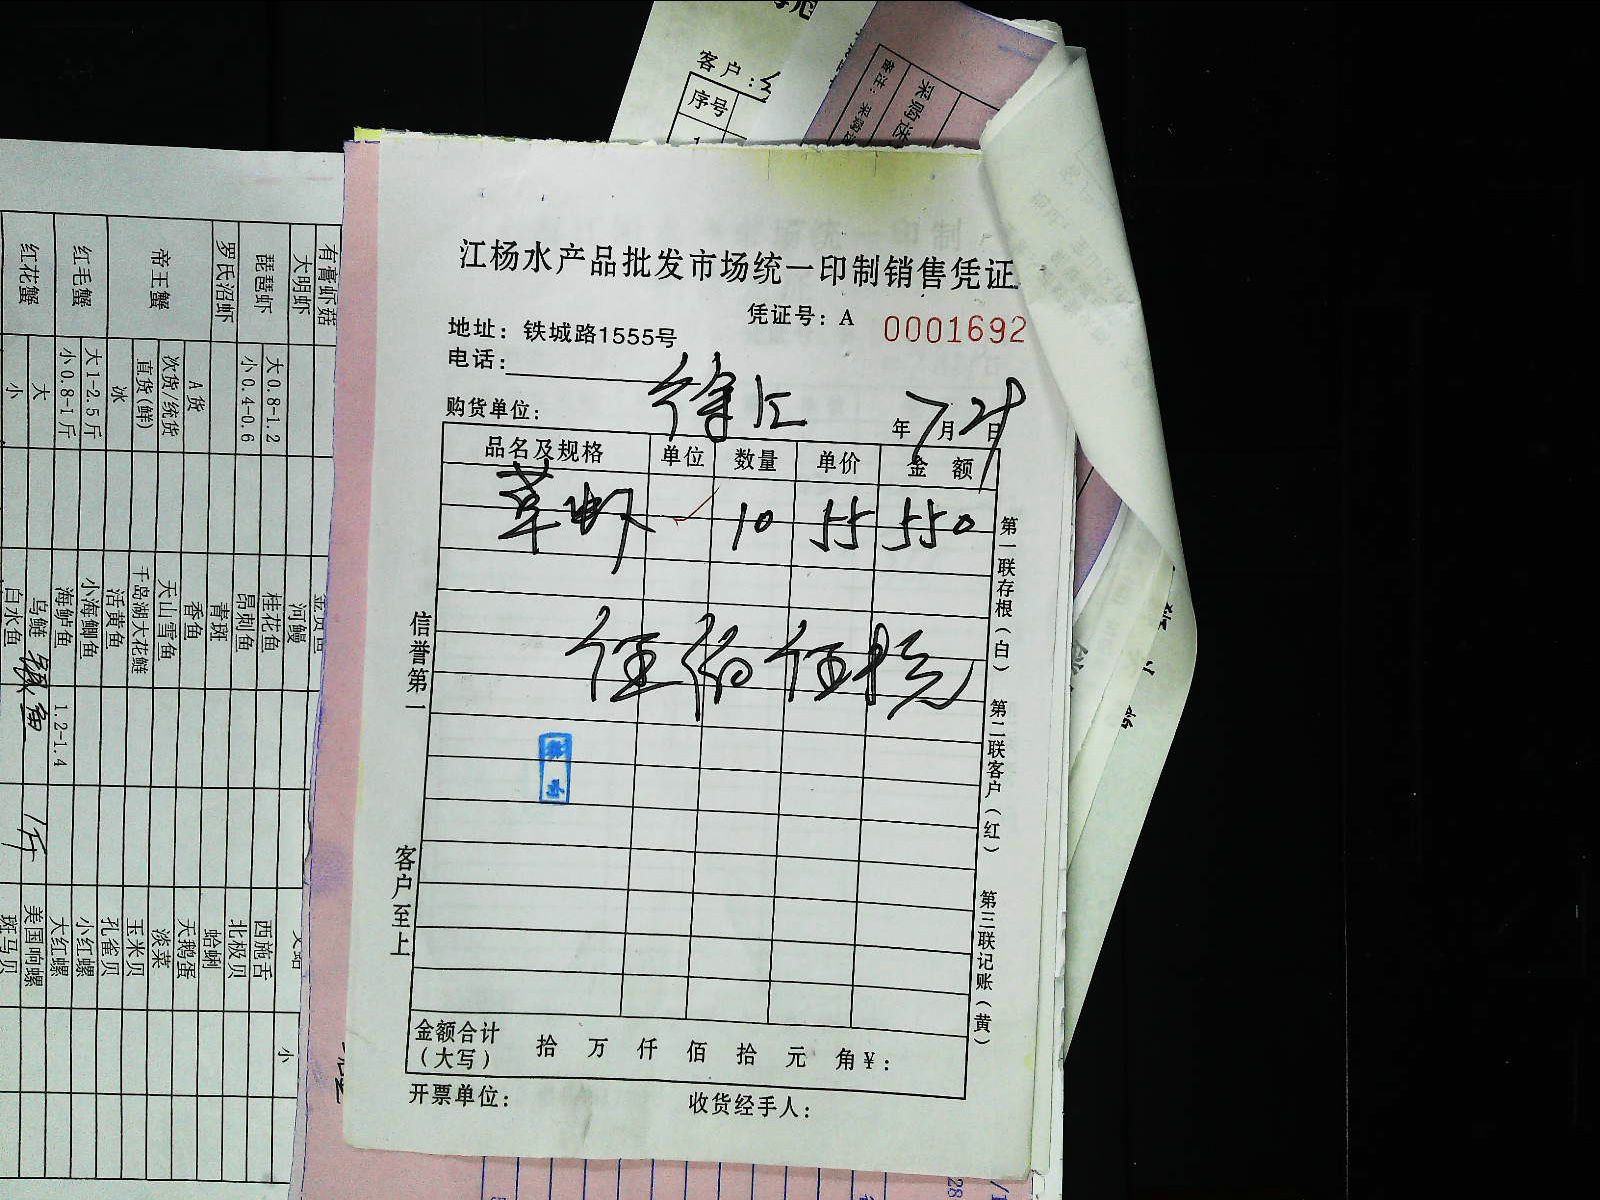 客户:
序号
备注：采购
采购送
江杨水产品批发市场统一印制销售凭证
凭证号：A 0001692
地址：铁城路1555号
电话：
购货单位： 徐汇 年 7 月 29 日
品名及规格 单位 数量 单价 金 额
草虾 10 55 550
伍佰伍拾元
信誉第一
客户至上
第一联存根（白）
第二联客户（红）
第三联记账（黄）
金额合计
（大写） 拾 万 仟 佰 拾 元 角 ¥：
开票单位：
收货经手人：
有膏虾菇
大明虾
琵琶虾 大0.8-1.2
小0.4-0.6
罗氏沼虾
帝王蟹 A货
次货/统货
直货(鲜)
冰
红毛蟹 大1-2.5斤
小0.8-1斤
红花蟹 大
小
河鳗
桂花鱼
昂刺鱼
青斑
香鱼
天山雪鱼
千岛湖大花鲢
活黄鱼
小海鲫鱼
海鲈鱼 1.2-1.4
乌鲢
白水鱼
西施舌
北极贝
蛤蜊
天鹅蛋
淡菜
玉米贝
孔雀贝
小红螺
大红螺
美国响螺
斑马贝
小